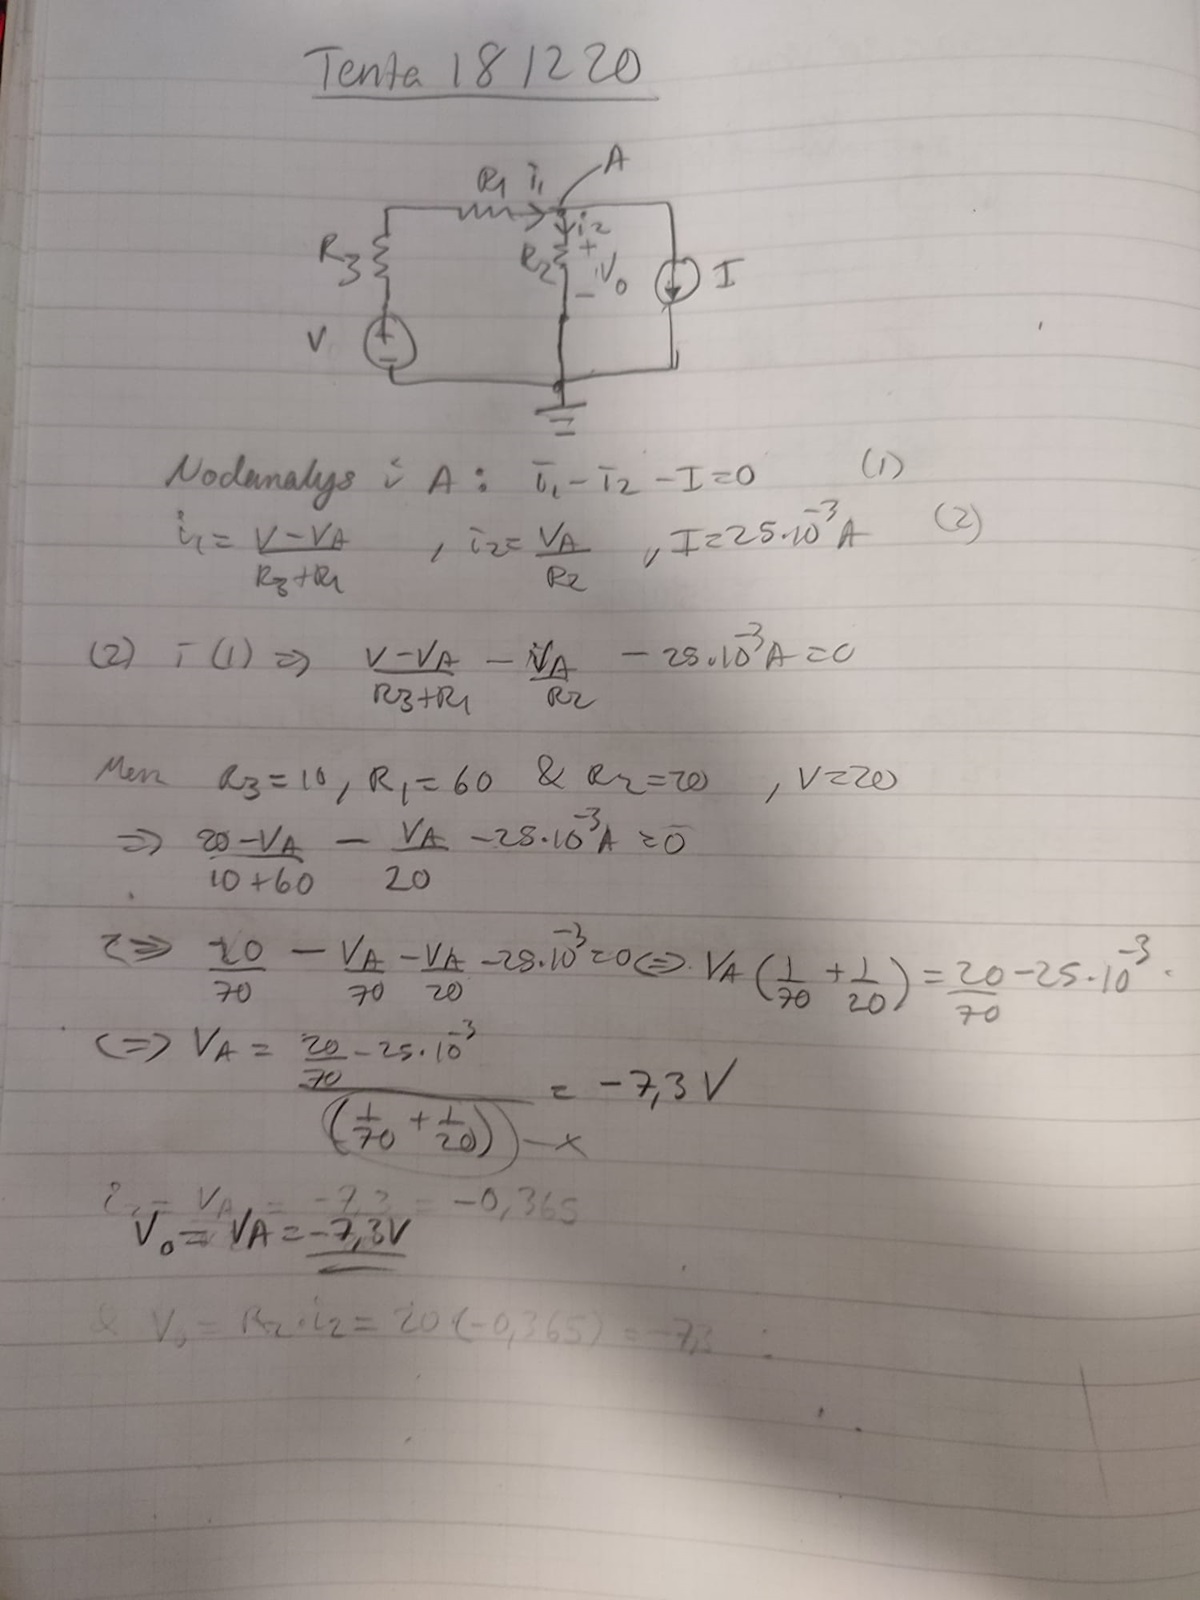 Tenta 181220
R1 i1 A
R3 R2 i2 + V0 - I
V + -
Nodanalys i A: i1 - i2 - I = 0 (1)
i1 = (V - VA)/(R3 + R1) , i2 = VA/R2 , I = 25·10^-3 A (2)
(2) i (1) => (V - VA)/(R3 + R1) - VA/R2 - 25·10^-3 A = 0
Men R3 = 10, R1 = 60 & R2 = 20 , V = 20
=> (20 - VA)/(10 + 60) - VA/20 - 25·10^-3 A = 0
<=> 20/70 - VA/70 - VA/20 - 25·10^-3 = 0 <=> VA (1/70 + 1/20) = 20/70 - 25·10^-3
<=> VA = (20/70 - 25·10^-3)/(1/70 + 1/20) = -7,3 V
i2 = VA = -7,3 = -0,365
V0 = VA = -7,3V
& V0 = R2·i2 = 20(-0,365) = -7,3